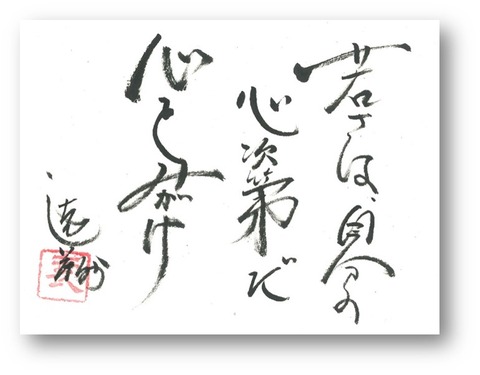 若さは、自分の
心次第だ
心をみがけ